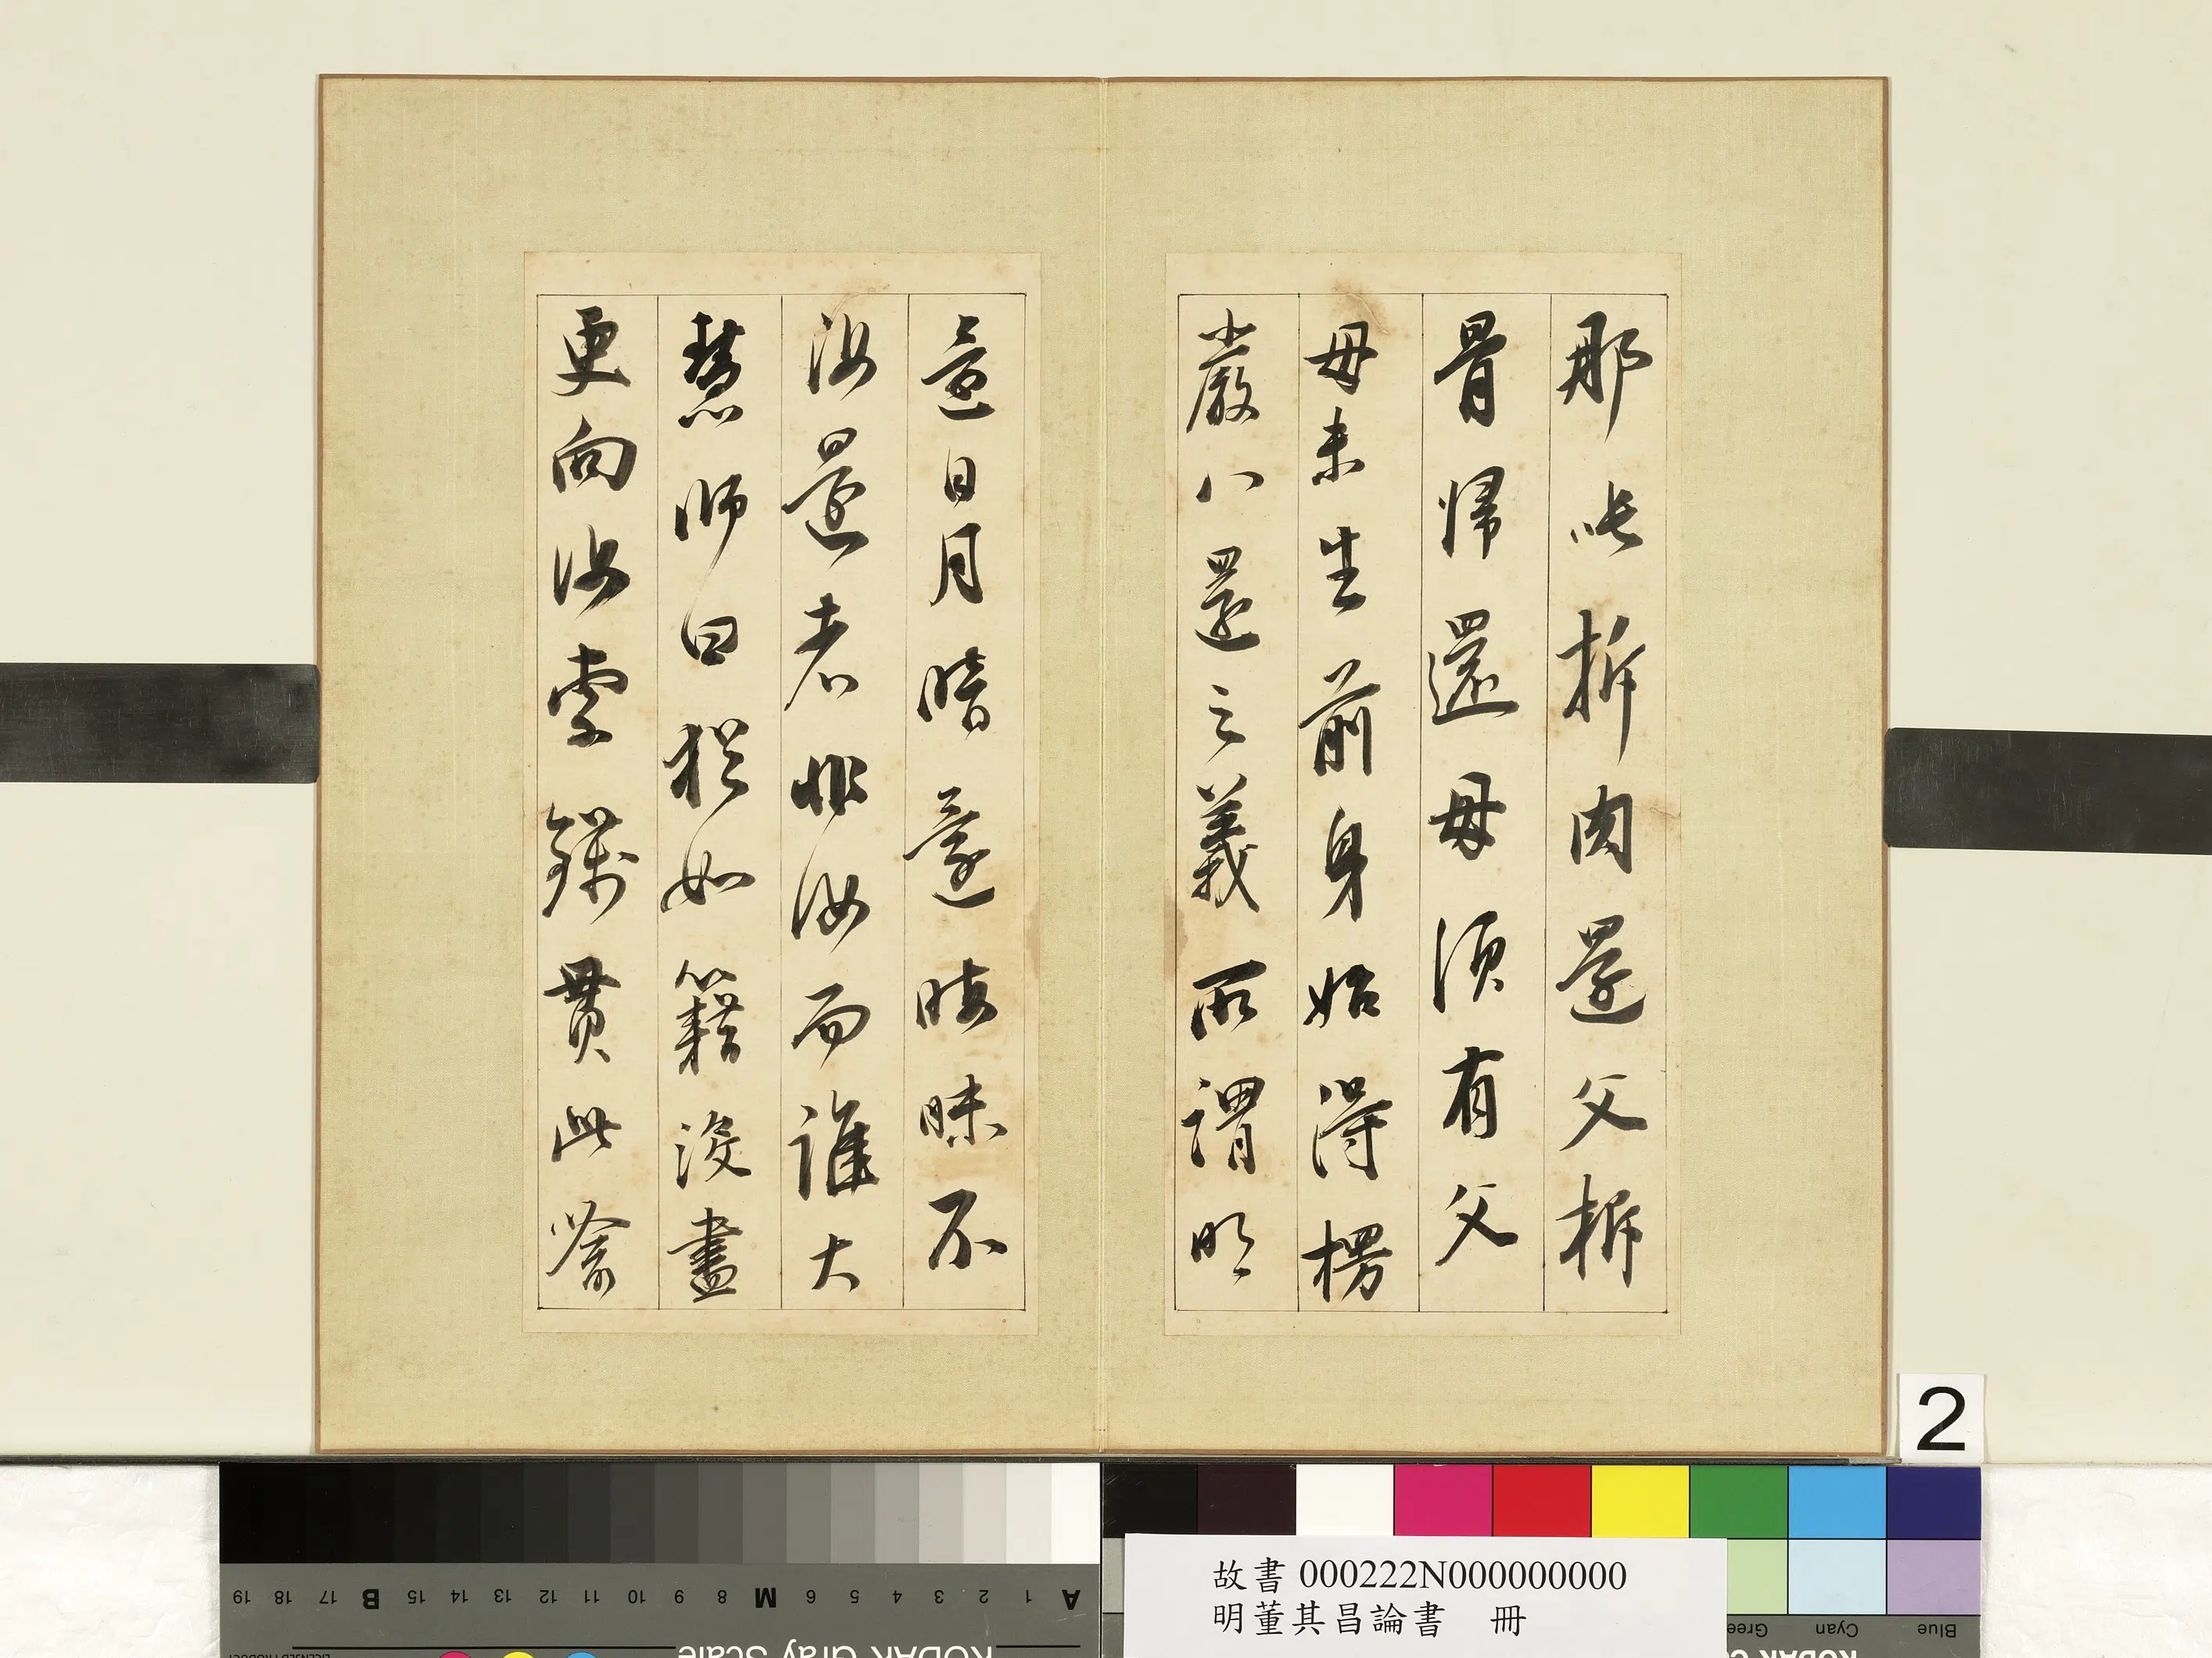 那吒拆肉還父拆
骨歸還母須有父
母未生前身始得楞
嚴八還之義所謂明
還日月暗還晦昧不
汝還者非汝而誰大
慧師曰猶如籍沒盡
更向汝索錢貫此喻
2
故書 000222N000000000
明董其昌論書 冊
A 1 2 3 4 5 6 M 8 9 10 11 12 13 14 15 B 17 18 19
KODAK Gray Scale
Blue Cyan